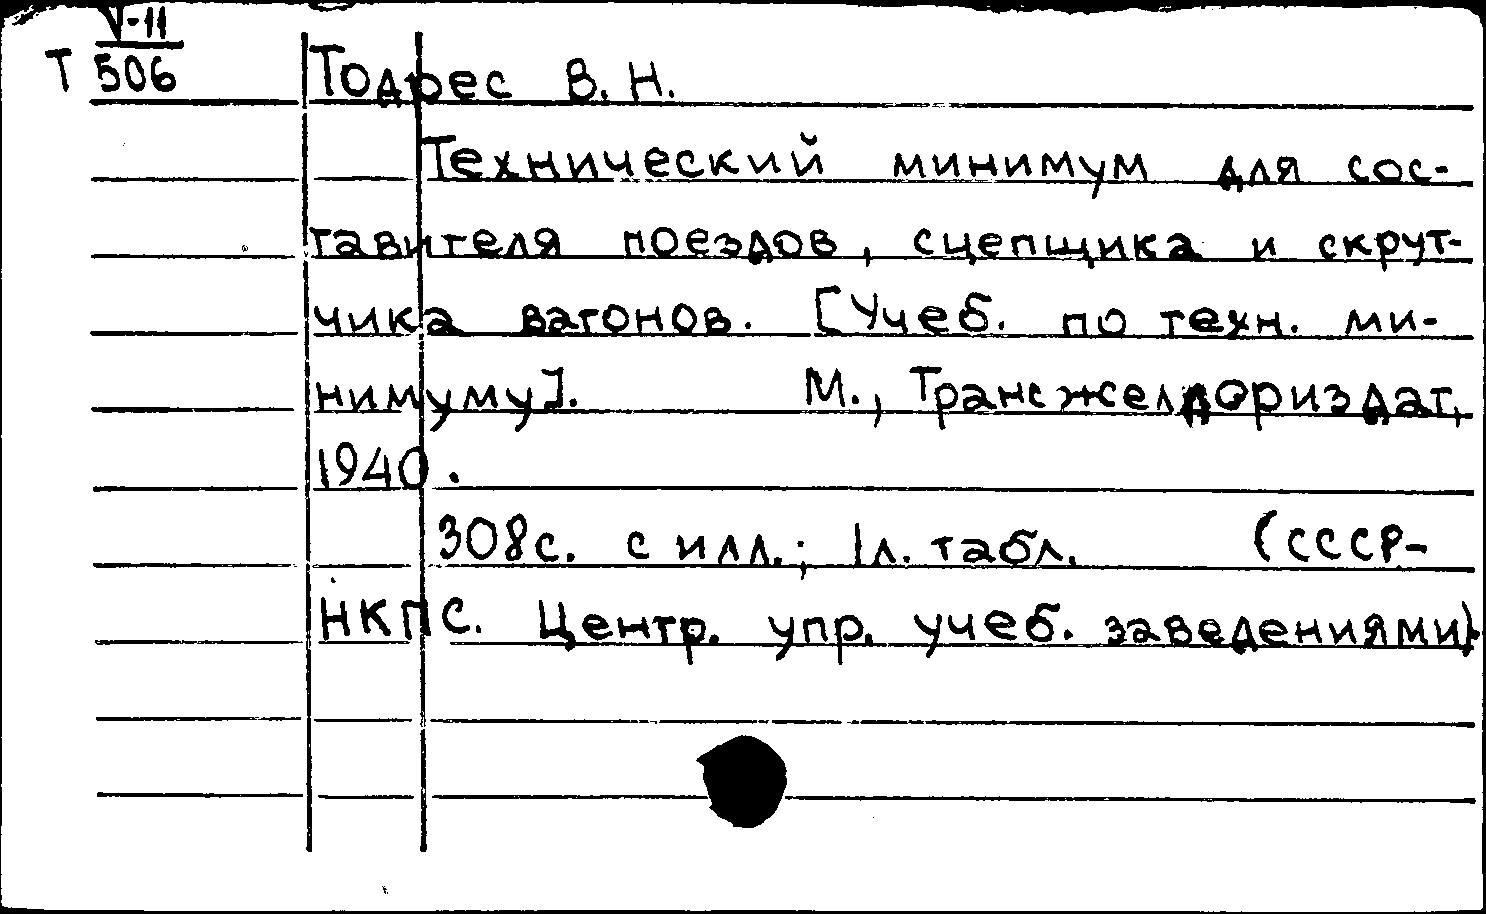 V-11
Т 506
Тодрес В. Н.
Технический минимум для сос-
тавителя поездов, сцепщика и скрут-
чика вагонов. [Учеб. по техн. ми-
нимуму]. М., Трансжелдориздат,
1940.
308с. с илл.; 1л. табл. (СССР-
НКПС. Центр. упр. учеб. заведениями).